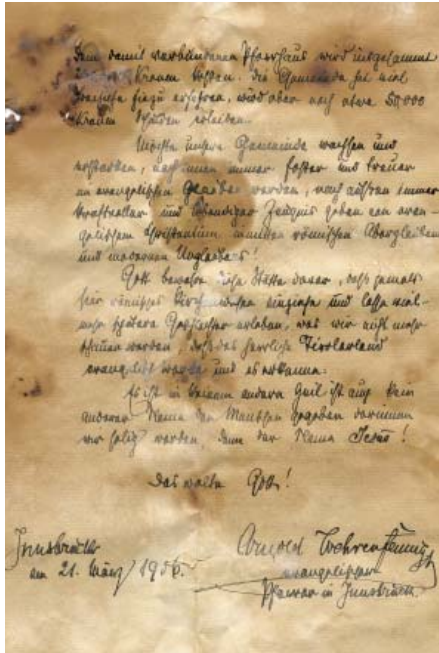 dem damit verbundenen Pfarrhaus wird insgesammt
Kronen kosten. Die Gemeinde hat viel
hiezu erfahren, wird aber noch etwa 50,000
Kronen Schulden erleiden.
Möchte unsere Gemeinde wachsen und
erstarken, nach innen immer fester und treuer
im evangelischen Glauben werden, nach außen immer
kraftvoller und lebendiger Zeugnis geben von evan-
gelischem Christentum inmitten römischen Aberglauben
und modernen Unglaubens!
Gott bewahre diese Stätte davor, daß jemals
hier römisches einziehe und lasse viel-
mehr spätere Geschlechter erleben, was wir nicht mehr
schauen werden, daß das herrliche Tirolerland
evangelisch werde und es erkenne:
Es ist in keinem andern Heil, ist auch kein
anderer Name den Menschen gegeben darinnen
wir selig werden, denn der Name Jesus!
Das walte Gott!
Innsbruck
am 21. März 1905.
Arnold Wehrenfennig
evangelischer
Pfarrer in Innsbruck.